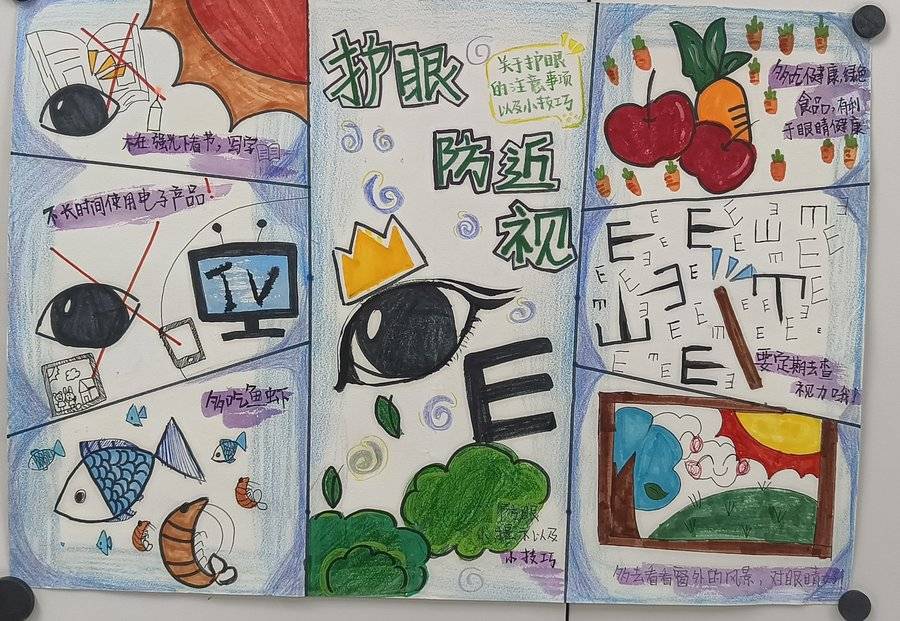 不在强光下看书，写字
不长时间使用电子产品！
TV
多吃鱼虾
护眼
关于护眼
的注意事项
以及小技巧
防近
视
E
防眼
以及
小技巧
多吃健康，绿色
食品，有利
于眼睛健康
E E E E E
要定期去查
视力哦！
多去看看窗外的风景，对眼睛好